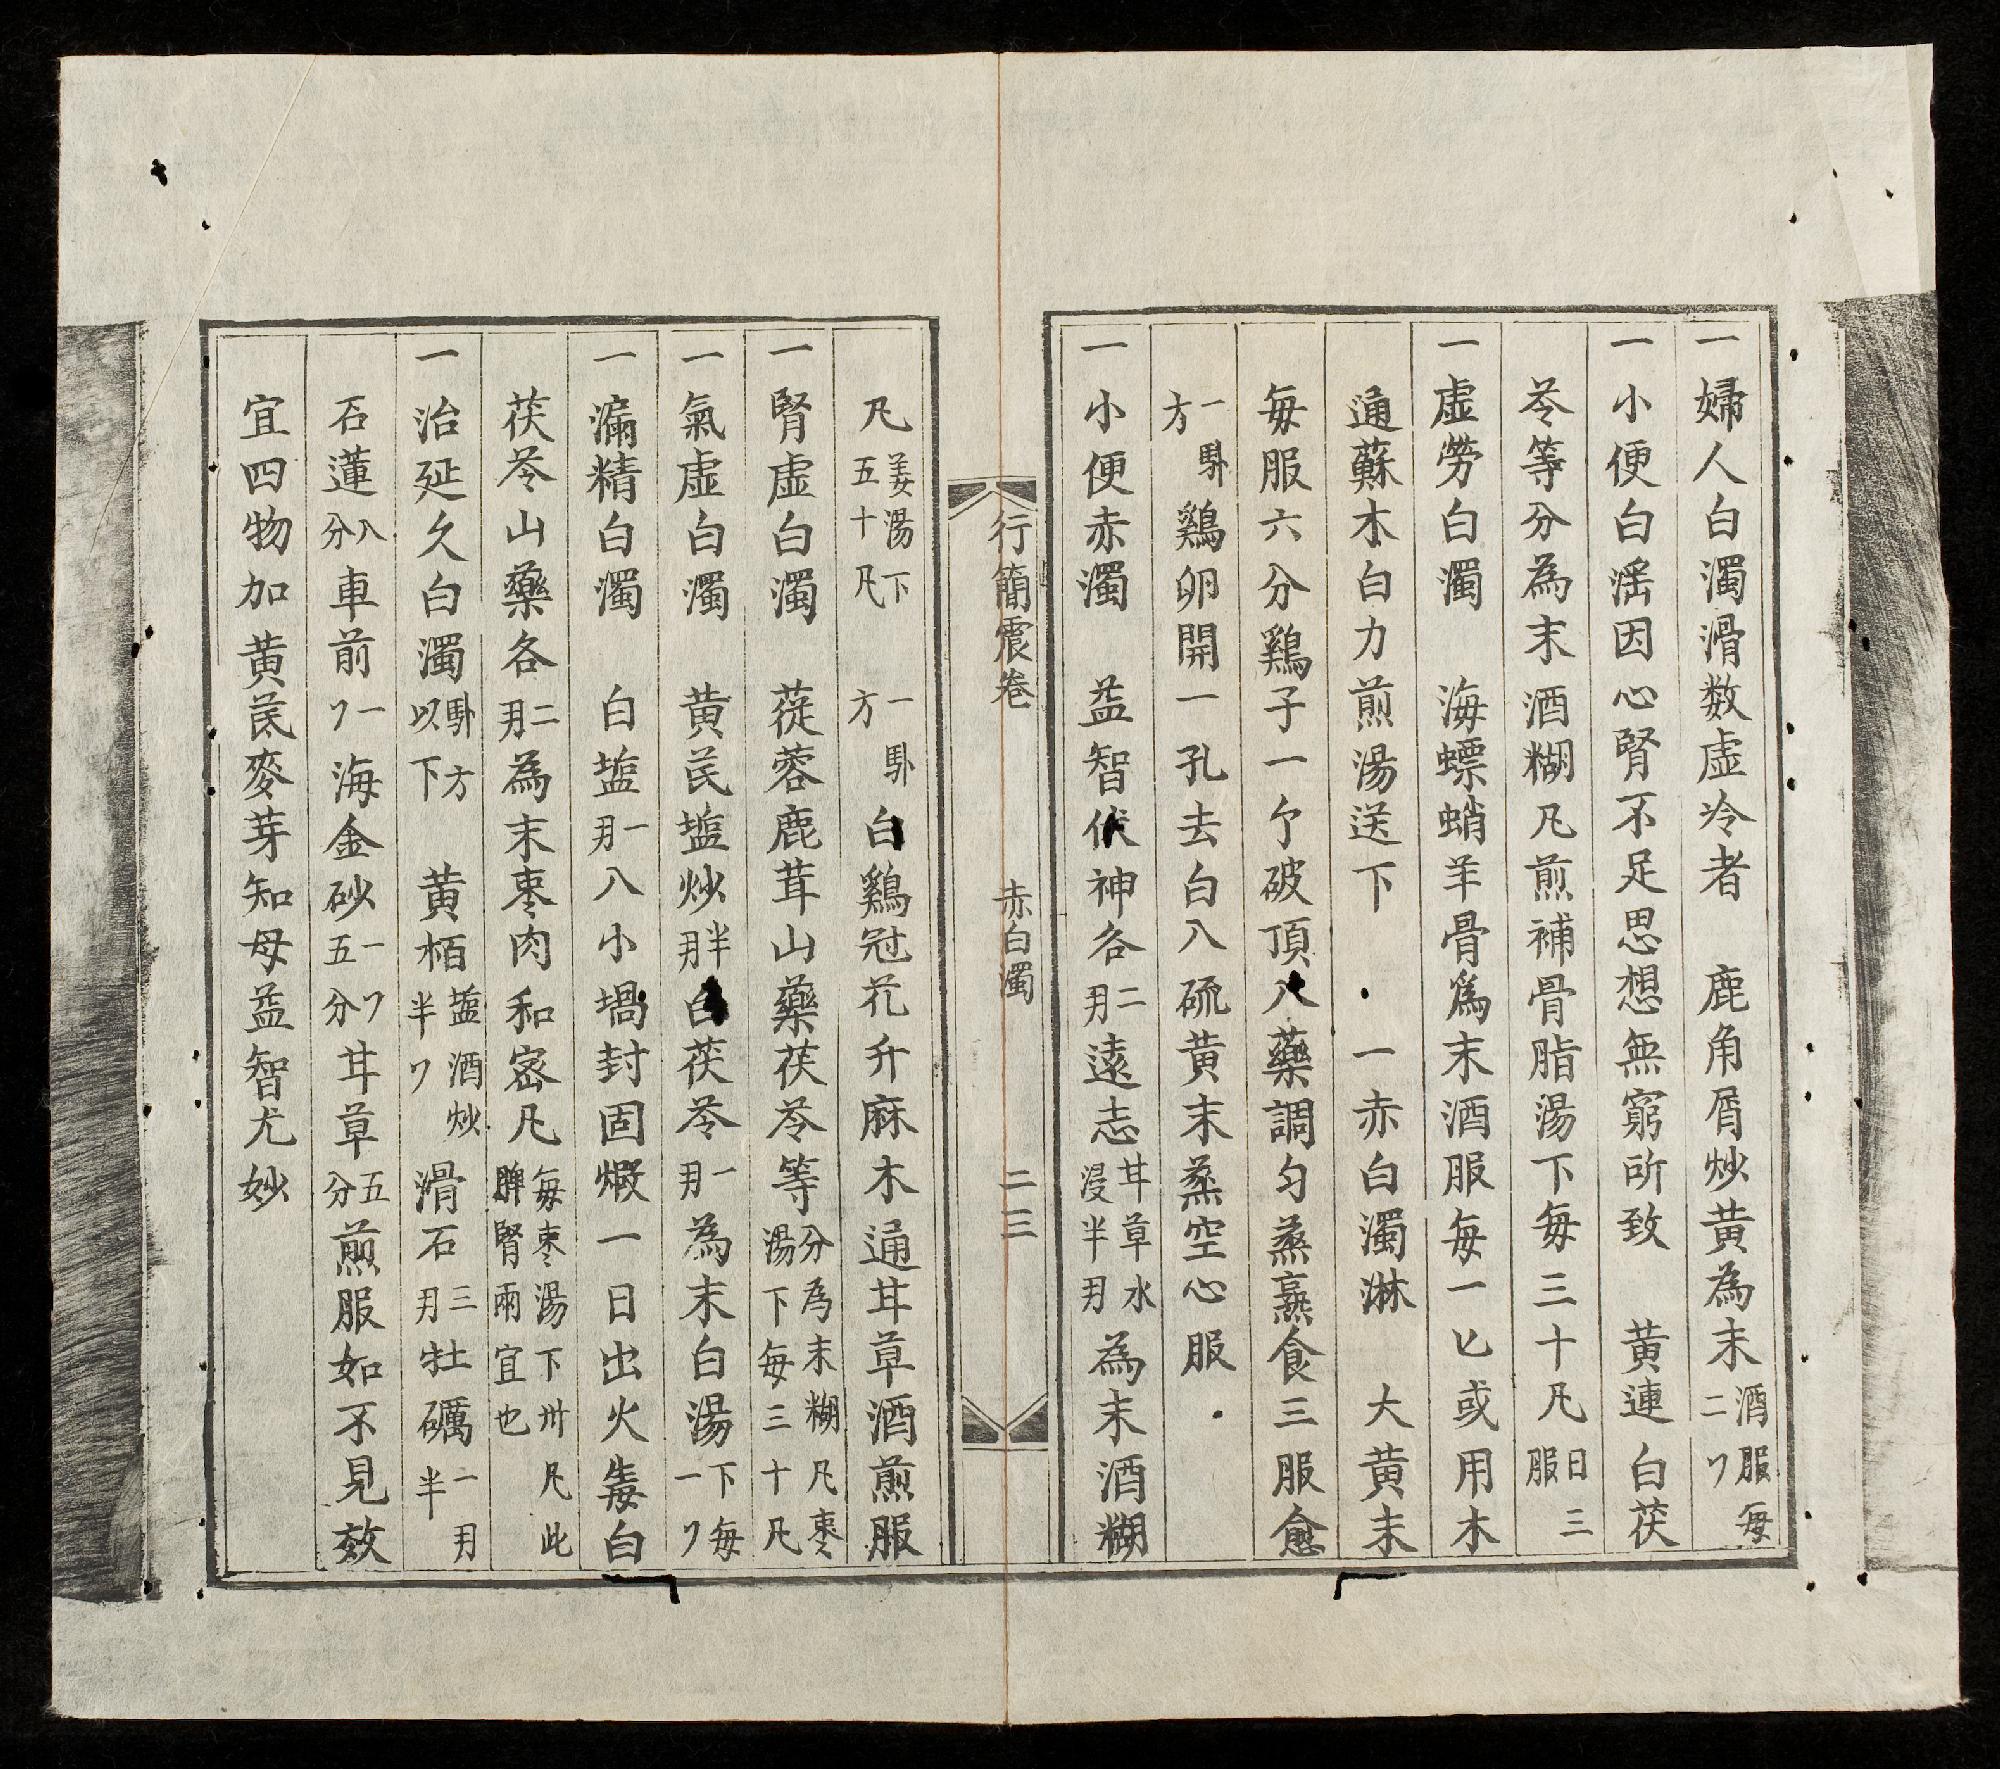 一婦人白濁滑数虚冷者　鹿角屑炒黄為末酒服每二𠃌
一小便白滛因心腎不足思想無窮所致　黄連白茯
苓等分為末酒糊凡煎補骨脂湯下每三十凡日三服
一虚勞白濁　海螵蛸羊骨為末酒服每一匕或用木
通蘇木白力煎湯送下　一赤白濁淋　大黄末
每服六分鷄子一个破頂入藥調匀蒸熟食三服愈
一方　鷄卵開一孔去白入硫黄末蒸空心服
一小便赤濁　益智伏神各二刄遠志甘草水浸半刄為末酒糊
行簡震卷　赤白濁　二三
凡姜湯下五十凡　一方　白鷄冠花升麻木通甘草酒煎服
一腎虚白濁　蓯蓉鹿茸山藥茯苓等分為末糊凡棗湯下每三十凡
一氣虚白濁　黄芪塩炒半刄白茯苓一刄為末白湯下每一𠃌
一漏精白濁　白塩一刄入小堝封固煆一日出火毒白
茯苓山藥各二刄為末棗肉和宻凡每棗湯下卅凡此脾腎兩宜也
一治延久白濁方以下　黄栢塩酒炒半𠃌滑石三刄牡礪一刄半
石蓮八分車前一𠃌海金砂一𠃌五分甘草五分煎服如不見效
宜四物加黄芪麥芽知母益智尤妙